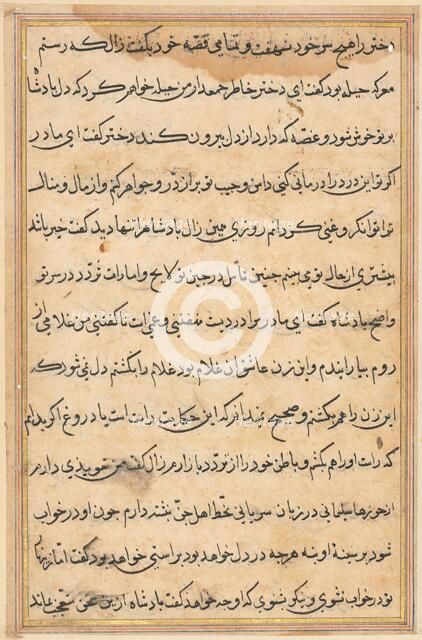 دختر را هیچ سر خود ننهفت و تمامی قصه خود بگفت زال که رستم
معرکه حیله بود گفت ای دختر خاطر جمع دار من حیله خواهم کرد که دل پادشاه
بر تو خوش شود و غصه که دارد از دل بیرون کند دختر گفت ای مادر
اگر تو این درد را درمانی کنی دامن و جیب تو پر از در و جواهر کنم و از مال و منال
ترا توانگر و غنی گردانم روزی همین زال پادشاه را تنها دید گفت
بیشتری از حالها تو می بینم چنین تأمل در جبین تو لایح و امارات تردد در سر تو
واضح پادشاه گفت ای مادر مرا دردیست نهفتنی و غمی است ناگفتنی من غلامی از
روم بیاراندم و این زن عاشق آن غلام بود غلام را بکشتم دل نمی شود که
این زن را هم بکشم و صحیح نمیدانم که این حکایت راست است یا دروغ اگر بدانم
که راست او را هم بکشم و باطن خود را از تردد باز آرم زال گفت من تعویذی دارم
از حرزهاء سلیمانی در زبان سریانی بخط اهل جن نبشته دارم چون او در خواب
شود بر سینهٔ او بنه هرچه در دل خواهد بود براستی خواهد بود گفت اما زینهار
تو در خواب نشوی و نیکو بشنوی که او چه خواهد گفت پادشاه ازین سخن متعجب بماند